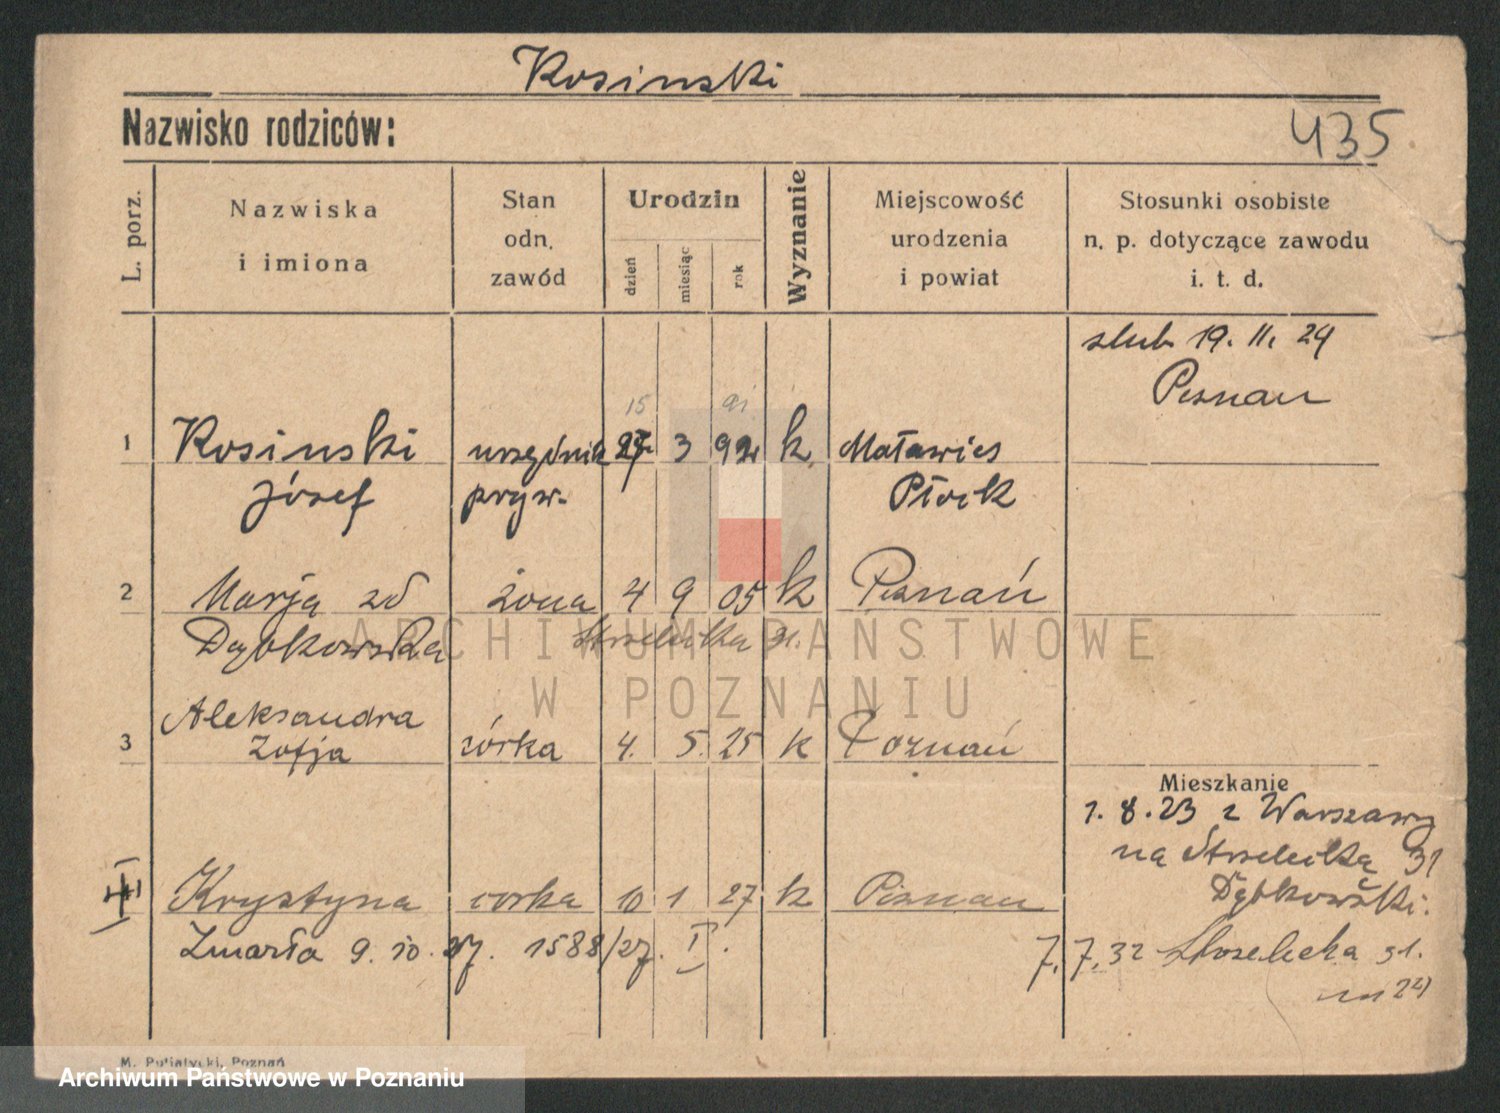 Kosinski
Nazwisko rodziców:
435
L. porz.
Nazwiska
i imiona
Stan
odn.
zawód
Urodzin
dzień
miesiąc
rok
Wyznanie
Miejscowość
urodzenia
i powiat
Stosunki osobiste
n. p. dotyczące zawodu
i. t. d.
slub 19. II. 24
Poznan
15
91
1 Kosinski urzędnik 3 k. Maławies
Józef pryw. Płock
2 Marja zd żona 4 9 05 k Poznań
Dąbkowska Strzelecka 31.
ARCHIWUM PAŃSTWOWE
W POZNANIU
Aleksandra
3 Zofja córka 4. 5. 25 k Poznań
Mieszkanie
1. 8. 23 z Warszawy
na Strzelecką 31
Dąbkowski.
Krystyna corka 10 1 27 k Poznan
Zmarła 9. 10. 27. 1588/27. I.
7. 7. 32 Strzelecka 31.
m 22)
M. Putiatycki, Poznań
Archiwum Państwowe w Poznaniu